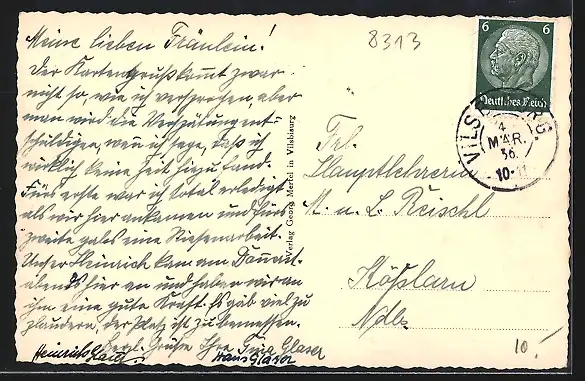 Meine lieben Fräulein!
Der Kartengruß kommt zwar
nicht so, wie ich versprochen, aber
man wird die Verspätung ent-
schuldigen, wenn ich sage, daß ich
wirklich keine Zeit hiezu fand.
Fürs erste war ich total erledigt
als wir hier ankamen und fürs
zweite gab es eine Riesenarbeit.
Unser Heinrich kam am Donnerst.
abends hier an und haben wir an
ihm eine gute Kraft. Es gäb viel zu
plaudern, der Platz ist zu bemessen.
Herzl. Grüße Ihre Glaser
Heinrich Hans Glaser
Verlag Georg Mertel in Vilsbiburg
8313
6 6
Deutsches Reich
VILSBIBURG
4.
MÄR.
36.
10-11
Frl.
Hauptlehrerin
M. u. L. Reischl
Kößlarn
Ndb.
10.-